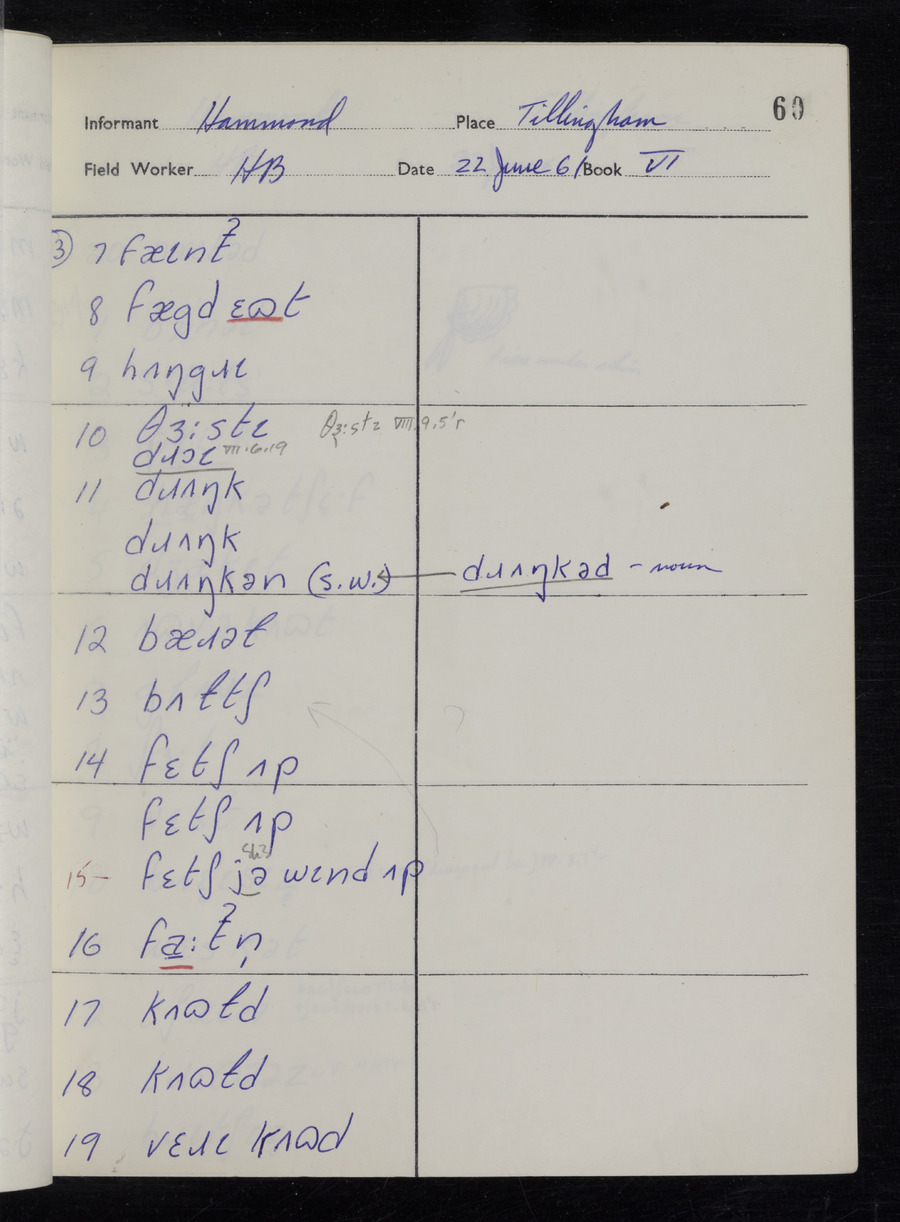 60
Informant Hammond Place Tillingham
Field Worker HB Date 22 June 61 Book VI
③ 7 fæɪnƚˀ
8 fægd ɛɷt
9 hʌŋgɹɪ
10 θɜ:stɪ θɜ:stɪ VIII.9.5'r
dɹɔɪ VII.6.19
11 dɹʌŋk
dɹʌŋk
dɹʌŋkən (s.w.) ← dɹʌŋkəd - noun
12 bæɹət
13 bʌɫtʃ
14 fɛtʃ ʌp
fɛtʃ ʌp
15 fɛtʃ jə wɪnd ʌp
16 fa:tˀn̩
17 kʌɷɫd
18 kʌɷɫd
19 vɛɹɪ kʌɷd